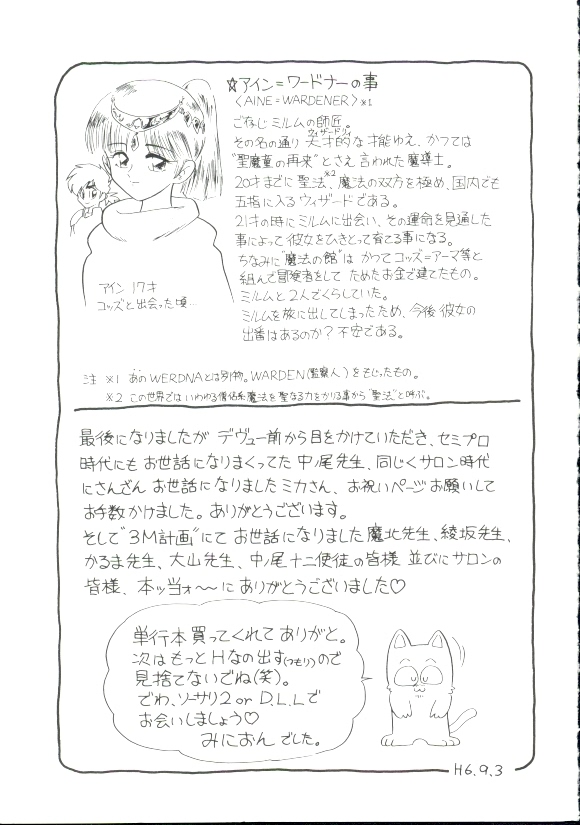 ☆アイン=ワードナーの事
〈AINE=WARDENER〉※1
ごなじミルムの師匠。
ウィザードリィ
その名の通り天才的な才能ゆえ、かつては
"聖魔童の再来"とさえ言われた魔導士。
※2
20才までに聖法、魔法の双方を極め、国内でも
五指に入るウィザードである。
21才の時にミルムに出会い、その運命を見通した
事によって彼女をひきとって育てる事になる。
ちなみに"魔法の館"はかつてコッズ=アーマ等と
組んで冒険者をしてためたお金で建てたもの。
ミルムと2人でくらしていた。
ミルムを旅に出してしまったため、今後彼女の
出番はあるのか?不安である。
アイン 17才
コッズと出会った頃…
注 ※1 あのWERDNAとは別物。WARDEN(監察人)をもじったもの。
※2 この世界ではいわゆる僧侶系魔法を聖なる力をかりる事から"聖法"と呼ぶ。
最後になりましたが デヴュー前から目をかけていただき、セミプロ
時代にもお世話になりまくってた中ノ尾先生、同じくサロン時代
にさんざんお世話になりましたミカさん、お祝いページお願いして
お手数かけました。ありがとうございます。
そして"3M計画"にてお世話になりました魔北先生、綾坂先生、
かるま先生、大山先生、中ノ尾十二使徒の皆様 並びにサロンの
皆様、本ッ当ォ〜〜にありがとうございました♡
単行本買ってくれてありがと。
次はもっとHなの出す(つもり)ので
見捨てないでね(笑)。
でわ、ソーサリ2 or D.L.Lで
お会いしましょう♡
みにおん でした。
H6.9.3